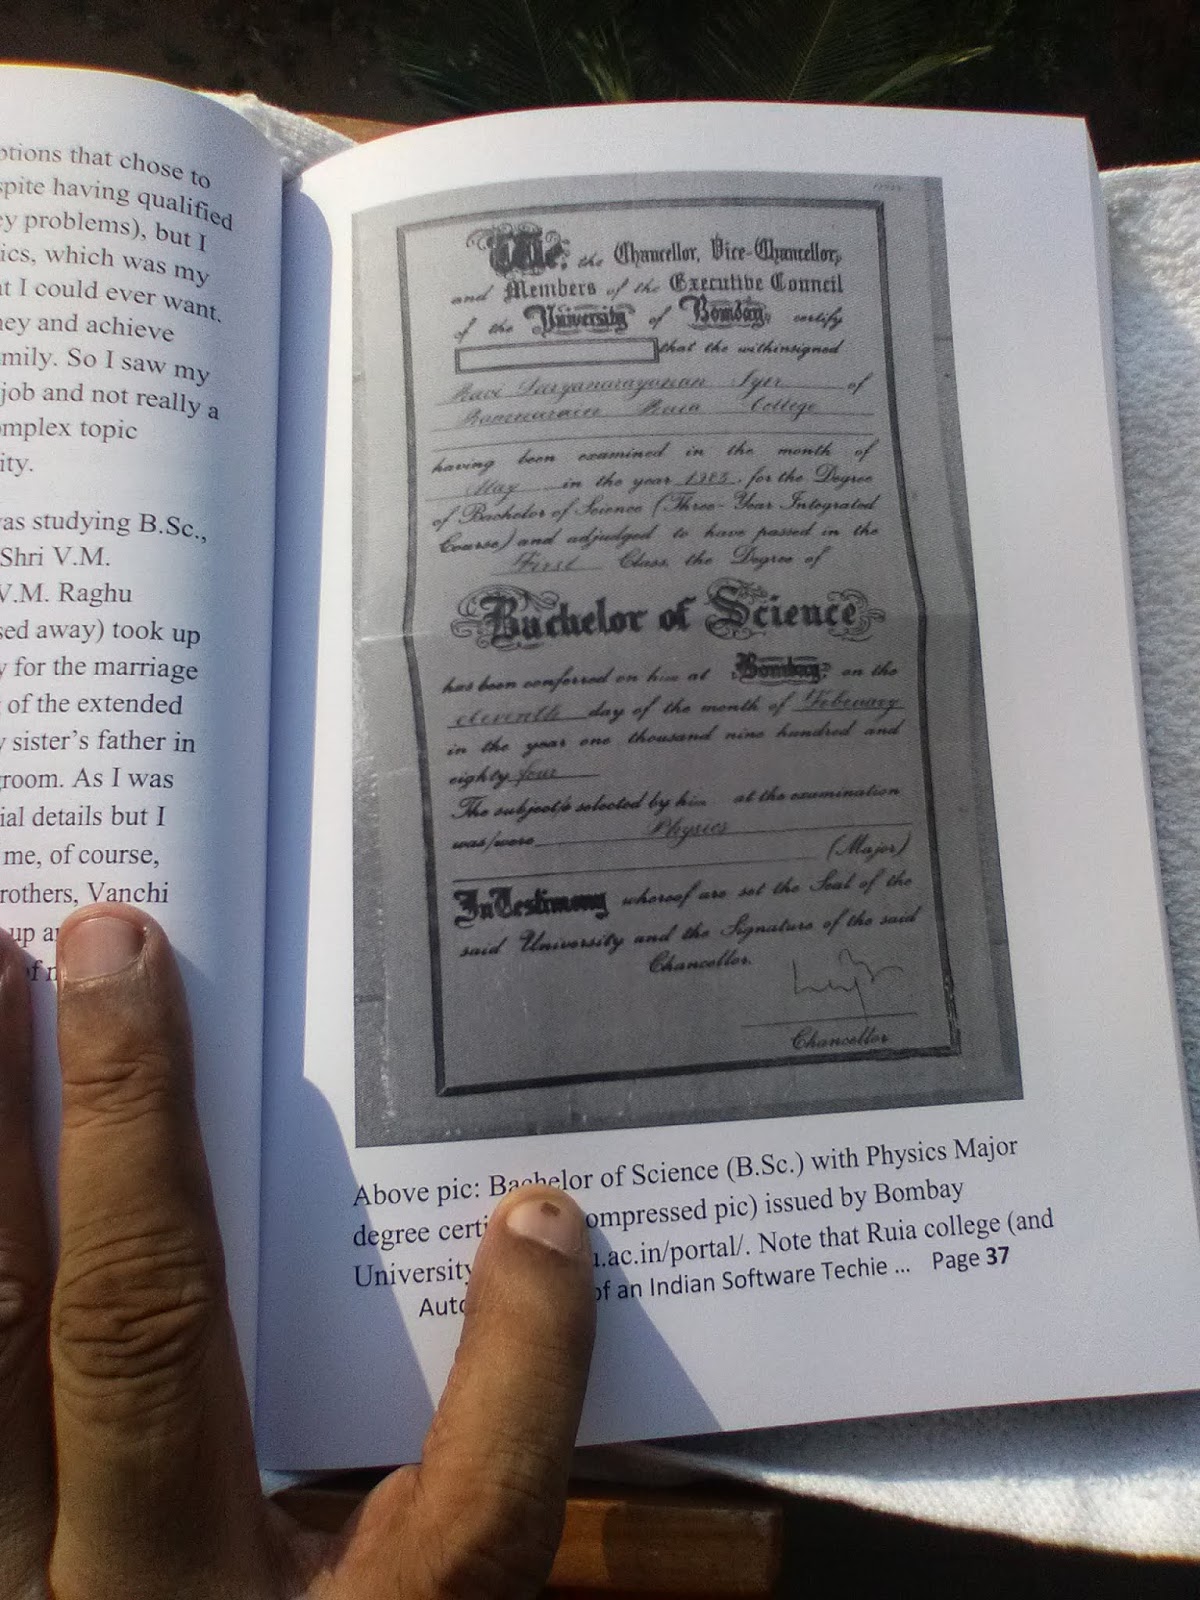 otions that chose to
spite having qualified
ey problems), but I
ics, which was my
at I could ever want.
ney and achieve
mily. So I saw my
job and not really a
omplex topic
ity.
was studying B.Sc.,
Shri V.M.
V.M. Raghu
sed away) took up
y for the marriage
of the extended
y sister's father in
groom. As I was
ial details but I
me, of course,
rothers, Vanchi
up a
of
We, the Chancellor, Vice-Chancellor,
and Members of the Executive Council
of the University of Bombay, certify
that the withinsigned
Ravi Suryanarayanan Iyer of
Ramnarain Ruia College
having been examined in the month of
May in the year 1983, for the Degree
of Bachelor of Science (Three-Year Integrated
Course) and adjudged to have passed in the
First Class, the Degree of
Bachelor of Science
has been conferred on him at Bombay, on the
eleventh day of the month of February
in the year one thousand nine hundred and
eighty four
The subject/s selected by him at the examination
was/were Physics
(Major)
In Testimony whereof are set the Seal of the
said University and the Signature of the said
Chancellor.
Chancellor
Above pic: Bachelor of Science (B.Sc.) with Physics Major
degree certi ompressed pic) issued by Bombay
University u.ac.in/portal/. Note that Ruia college (and
Auto of an Indian Software Techie ... Page 37